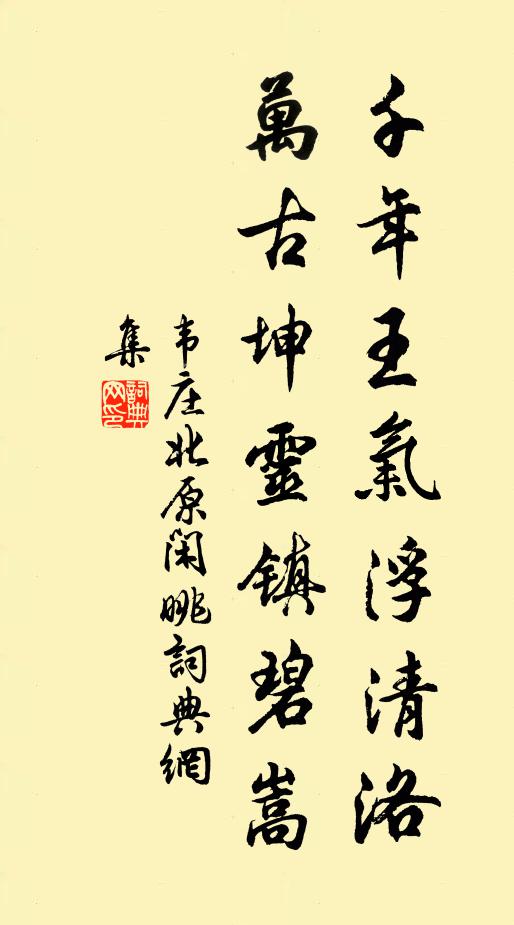 千年王氣浮清洛
萬古坤靈镇碧嵩
韦庄北原闲眺詞典網
集
詞典
网印